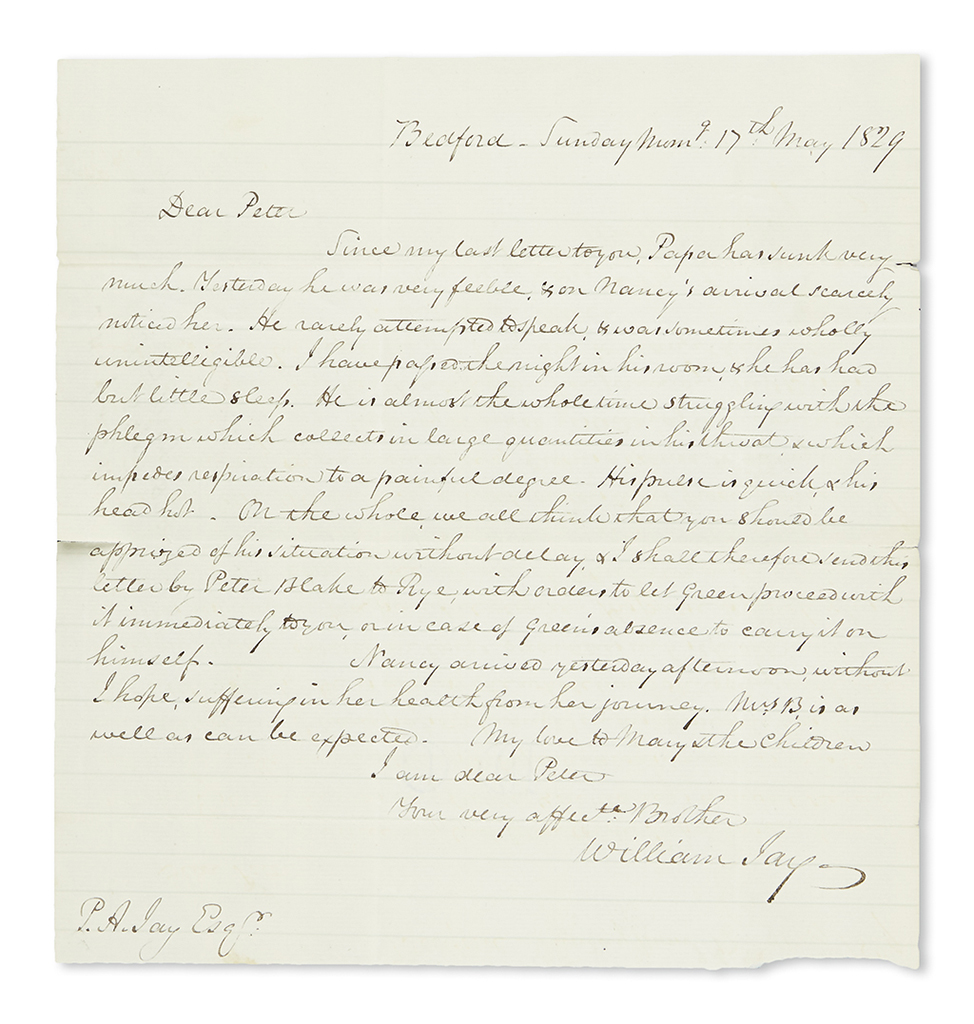 Bedford - Sunday Morng. 17th May 1829
Dear Peter
Since my last letter to you, Papa has sunk very
much. Yesterday he was very feeble, & on Nancy's arrival scarcely
noticed her. He rarely attempted to speak, & was sometimes wholly
unintelligible. I have passed the night in his room, & he has had
but little sleep. He is almost the whole time struggling with the
phlegm which collects in large quantities in his throat, & which
impedes respiration to a painful degree. His pulse is quick, & his
head hot. On the whole, we all think that you should be
apprized of his situation without delay, & I shall therefore send this
letter by Peter Blake to Rye, with orders to let Green proceed with
it immediately to you, or in case of Green's absence to carry it on
himself. Nancy arrived yesterday afternoon, without
I hope, suffering in her health from her journey. Mrs B. is as
well as can be expected. My love to Mary & the Children
I am dear Peter
Your very affecte. Brother
William Jay
P. A. Jay Esqr.